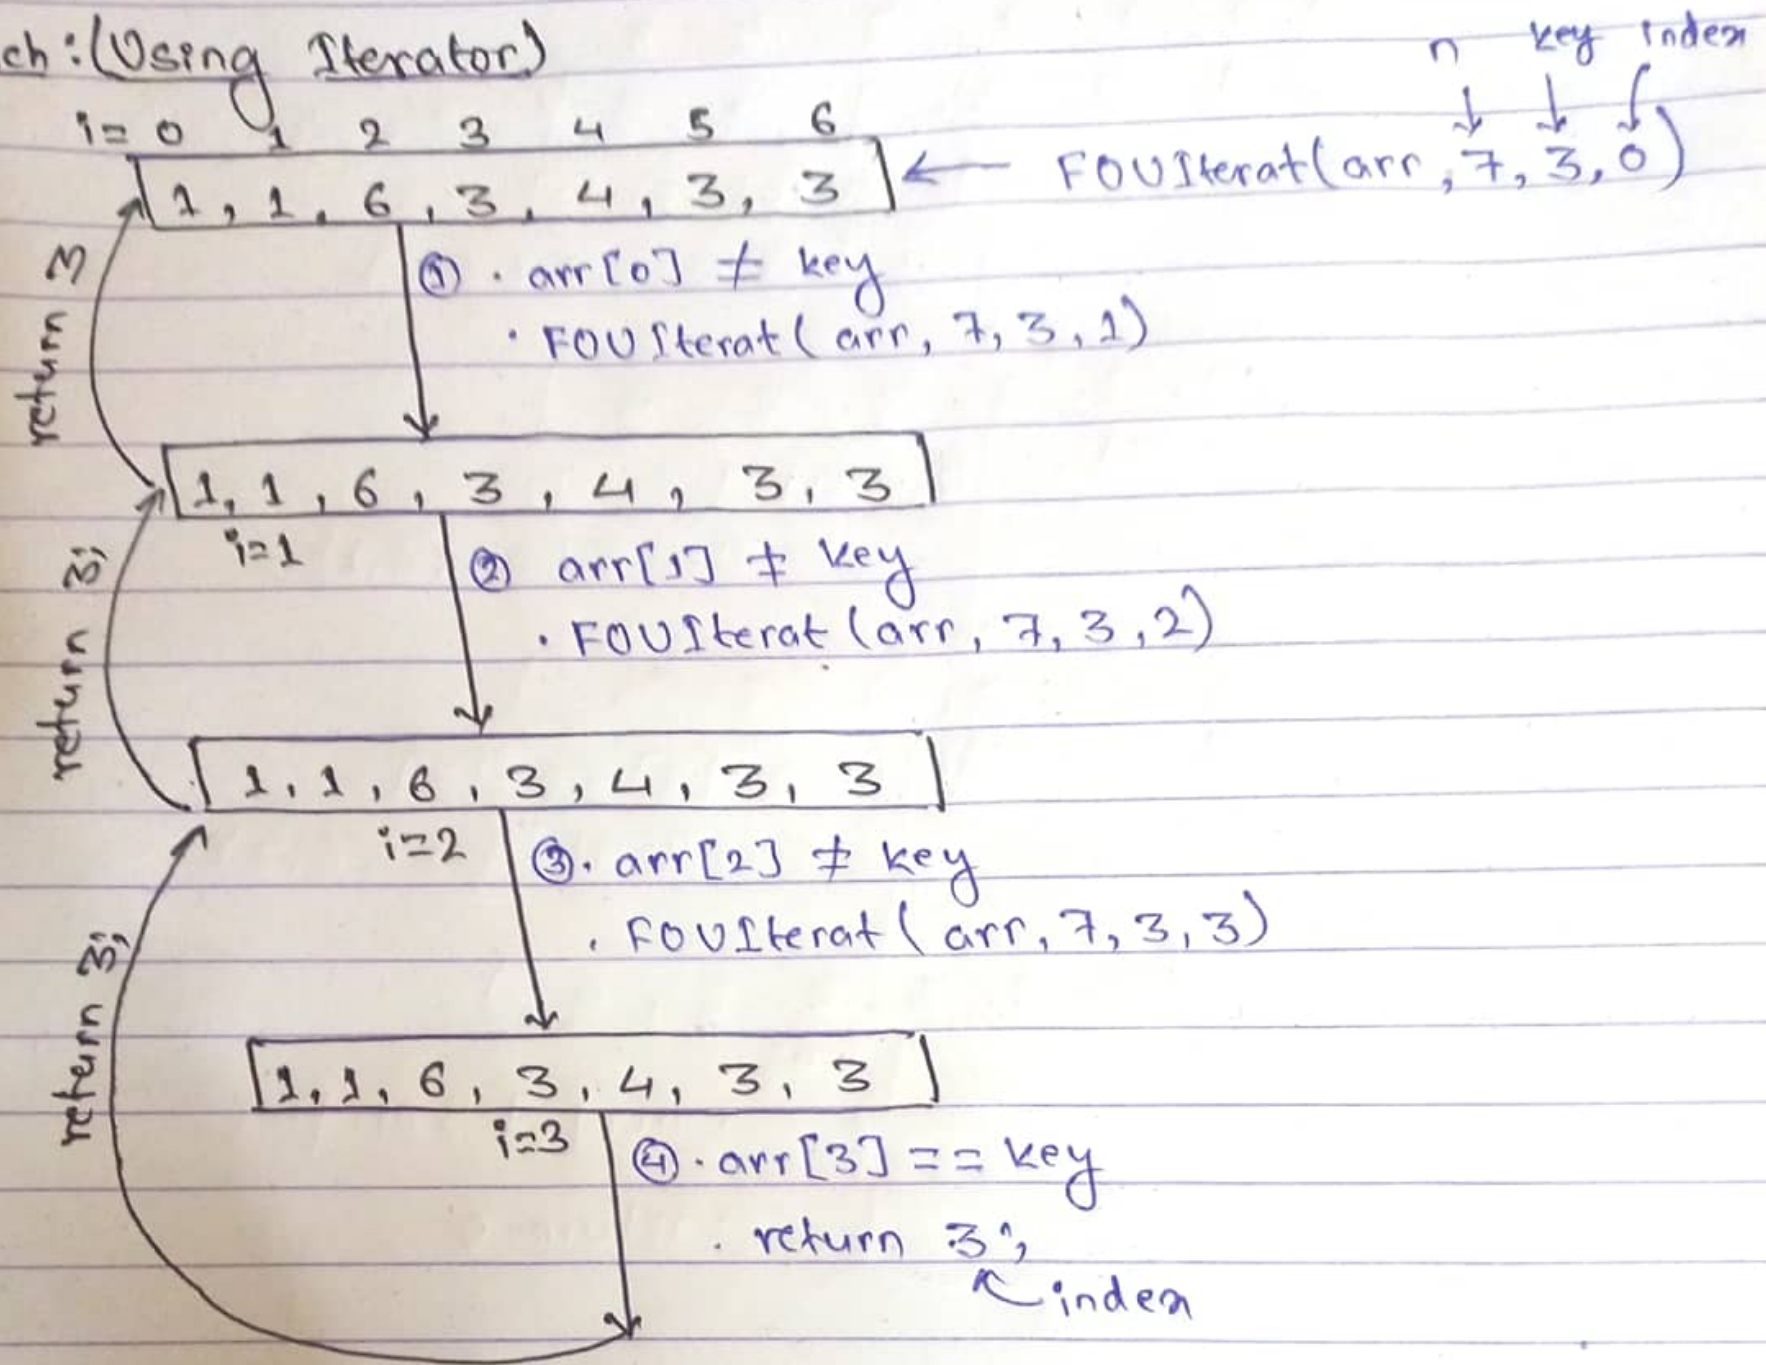 ch : (Using Iterator)
n key index
i= 0 1 2 3 4 5 6
1, 1, 6, 3, 4, 3, 3 ← FOUIterat(arr, 7, 3, 0)
return 3
① . arr[0] ≠ key
. FOUIterat(arr, 7, 3, 1)
1, 1, 6, 3, 4, 3, 3
i=1
return 3;
② arr[1] ≠ key
. FOUIterat(arr, 7, 3, 2)
1, 1, 6, 3, 4, 3, 3
i=2
return 3;
③. arr[2] ≠ key
. FOUIterat(arr, 7, 3, 3)
1, 1, 6, 3, 4, 3, 3
i=3
④. arr[3] == key
. return 3;
index